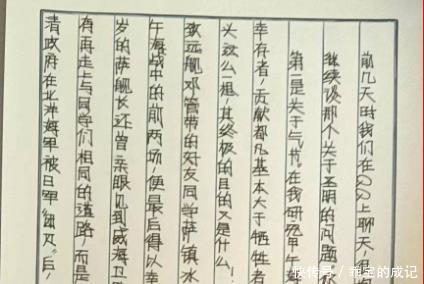 前几天时我们在QQ上聊天，很
继续谈那个关于圣明的问题
第二是关于气节。在我研究甲午
幸存者，贡献都凡基本大于牺牲者
头这么一想，其终极的目的又是什么！
致远舰邓管带的好友同学萨镇冰
午海战中的前两场，便最后得以幸
岁的萨舰长还曾亲眼见到威海卫
有再走上与同学们相同的道路，而是
清政府在北洋海军被日军“细
后，
快传号／乖宝的成记